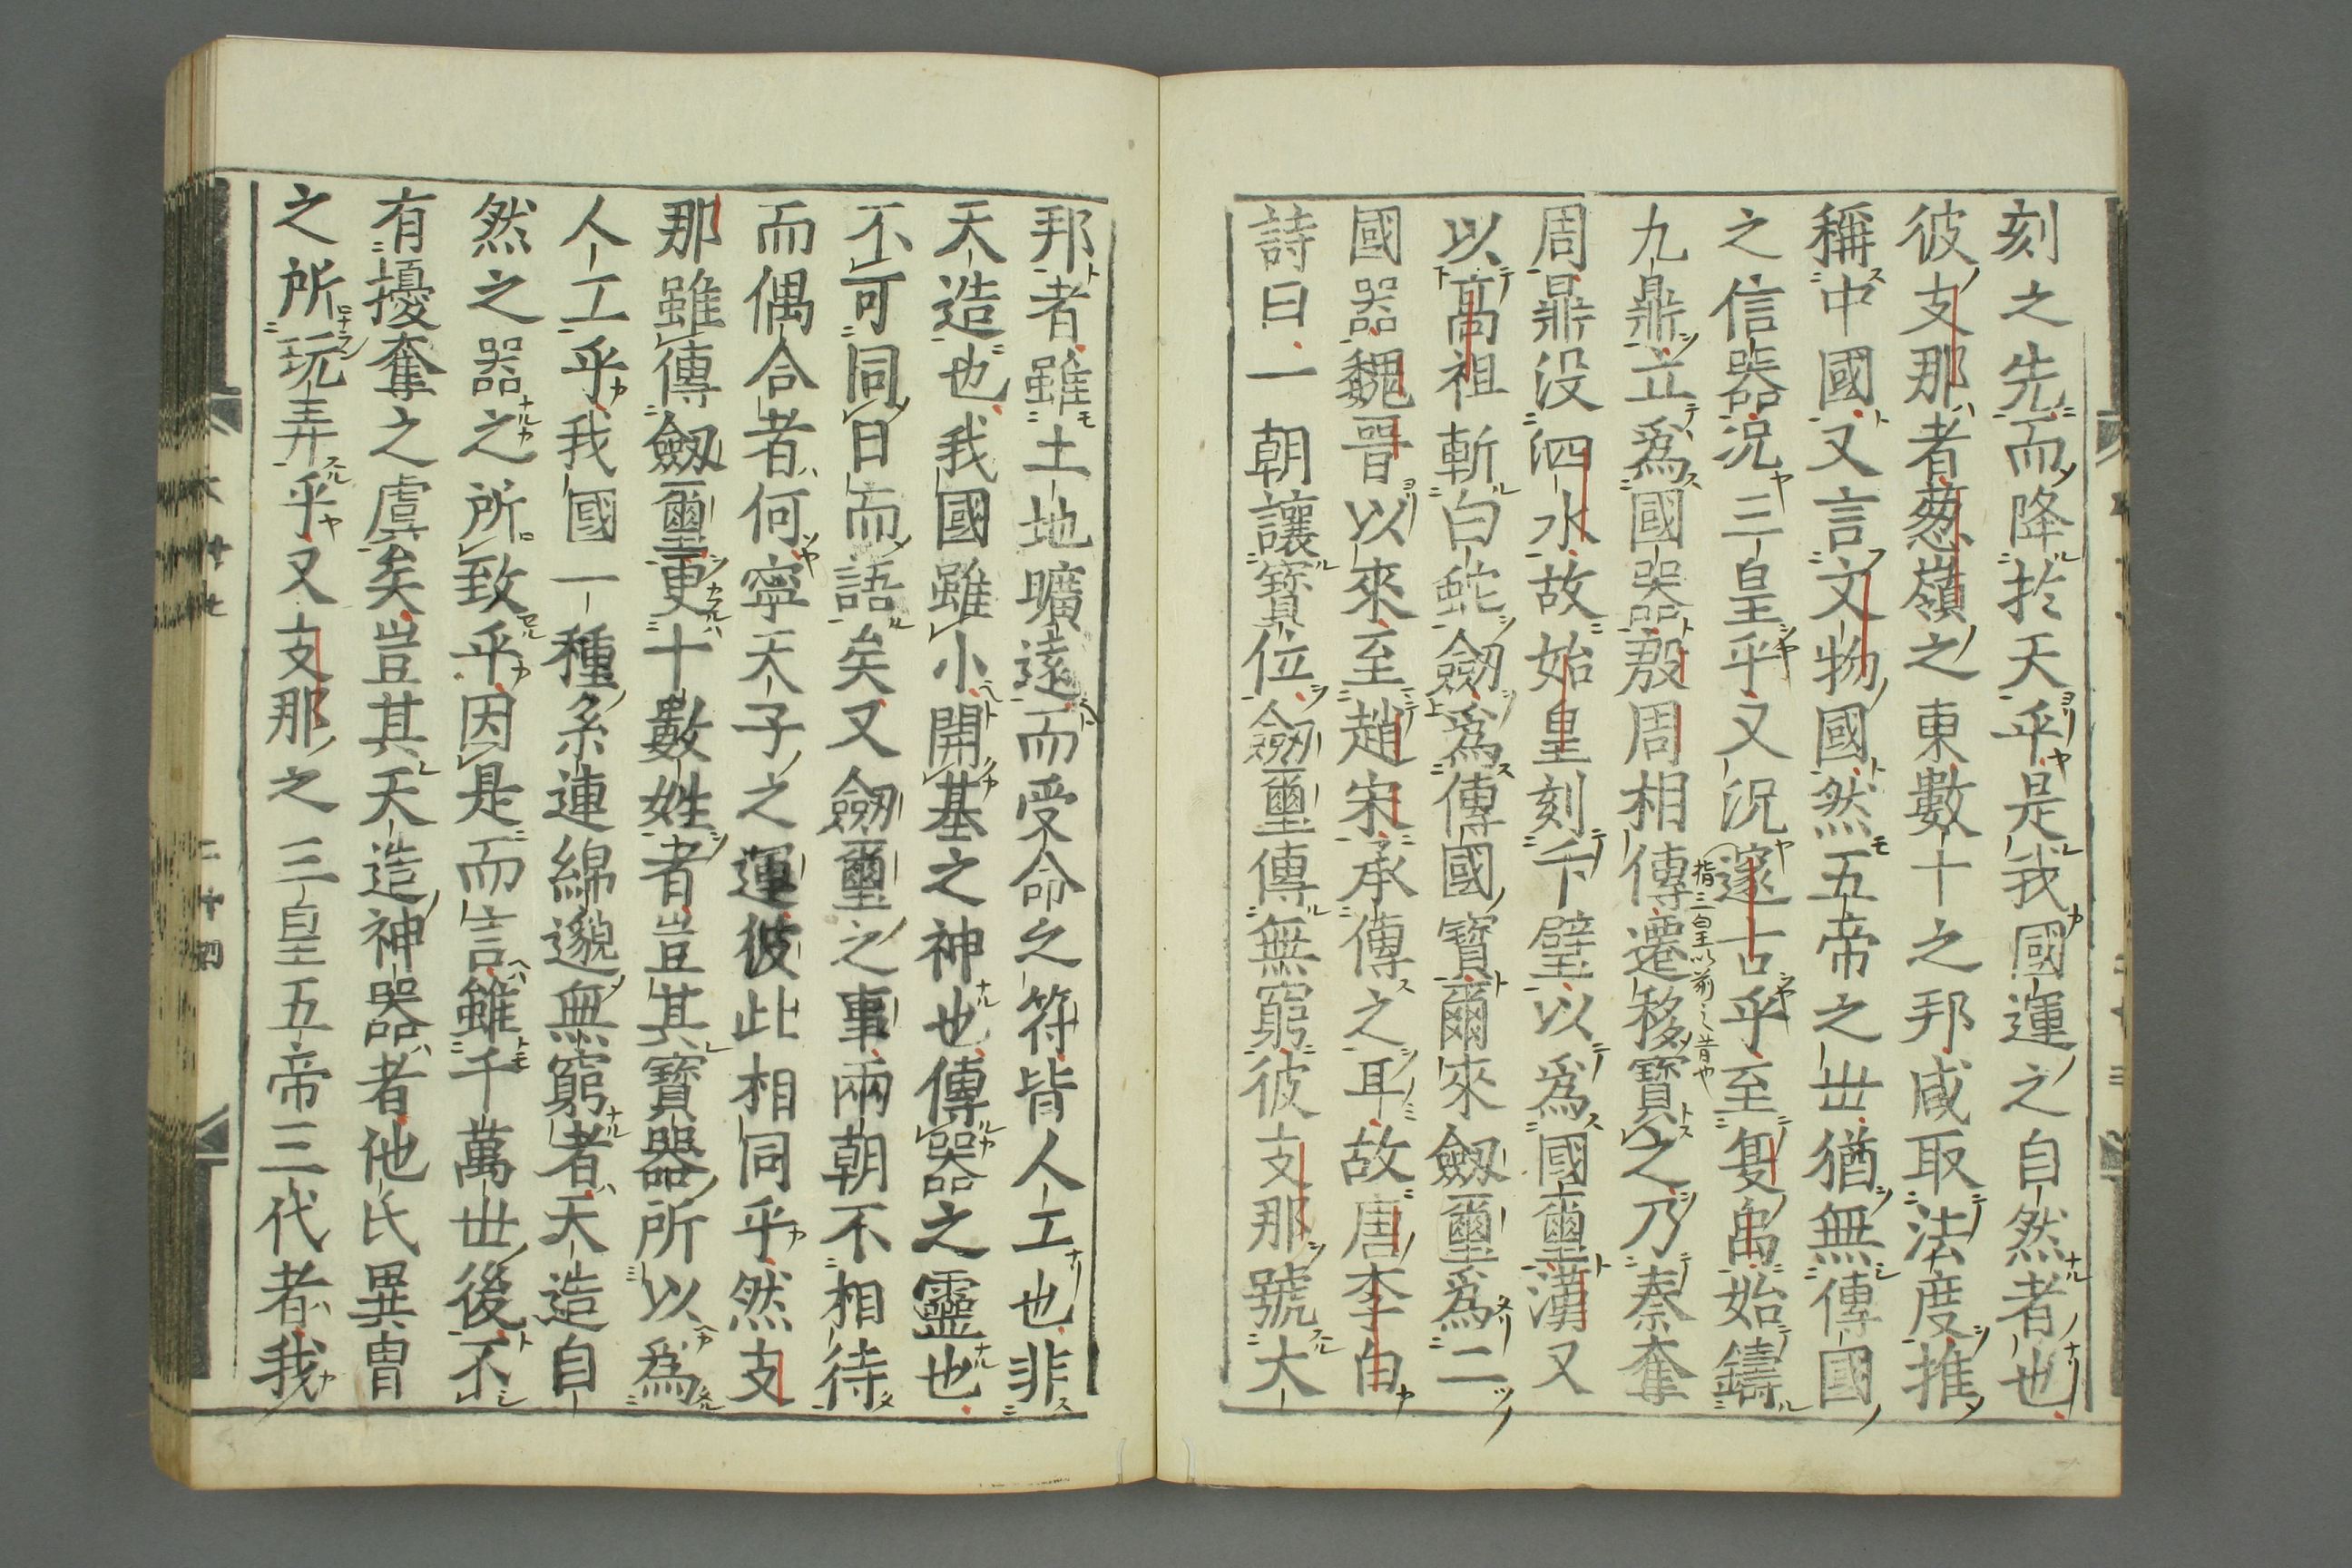 刻之先而降於天乎是我國運之自然者也
彼支那者葱嶺之東數十之邦咸取法度推
稱中國又言文物國然五帝之丗猶無傳國
之信器況三皇乎又況邃古乎至夏禹始鑄
指三皇以前之昔也
九鼎立爲國器殷周相傳遷移寶之乃秦奪
周鼎没泗水故始皇刻卞璧以爲國璽漢又
以高祖斬白蛇劒爲傳國寶爾來劔璽爲二
國器魏晉以來至趙宋承傳之耳故唐李白
詩曰一朝讓寶位劒璽傳無窮彼支那號大
邦者雖土地曠遠而受命之符皆人工也非
天造也我國雖小開基之神也傳器之靈也
不可同日而語矣又劒璽之事兩朝不相待
而偶合者何寧天子之運彼此相同乎然支
那雖傳劔璽更十數姓者豈其寶器所以爲
人工乎我國一種系連綿邈無窮者天造自
然之器之所致乎因是而言雖千萬丗後不
有擾奪之虞矣豈其天造神器者他氏異冑
之所玩弄乎又支那之三皇五帝三代者我
二十四